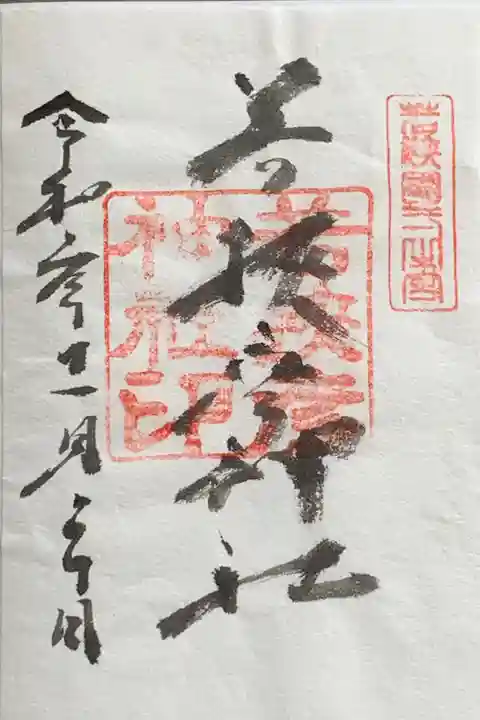 若狭國一之宮
若狭彦神社
若狭彦
神社印
令和元年十一月二十日